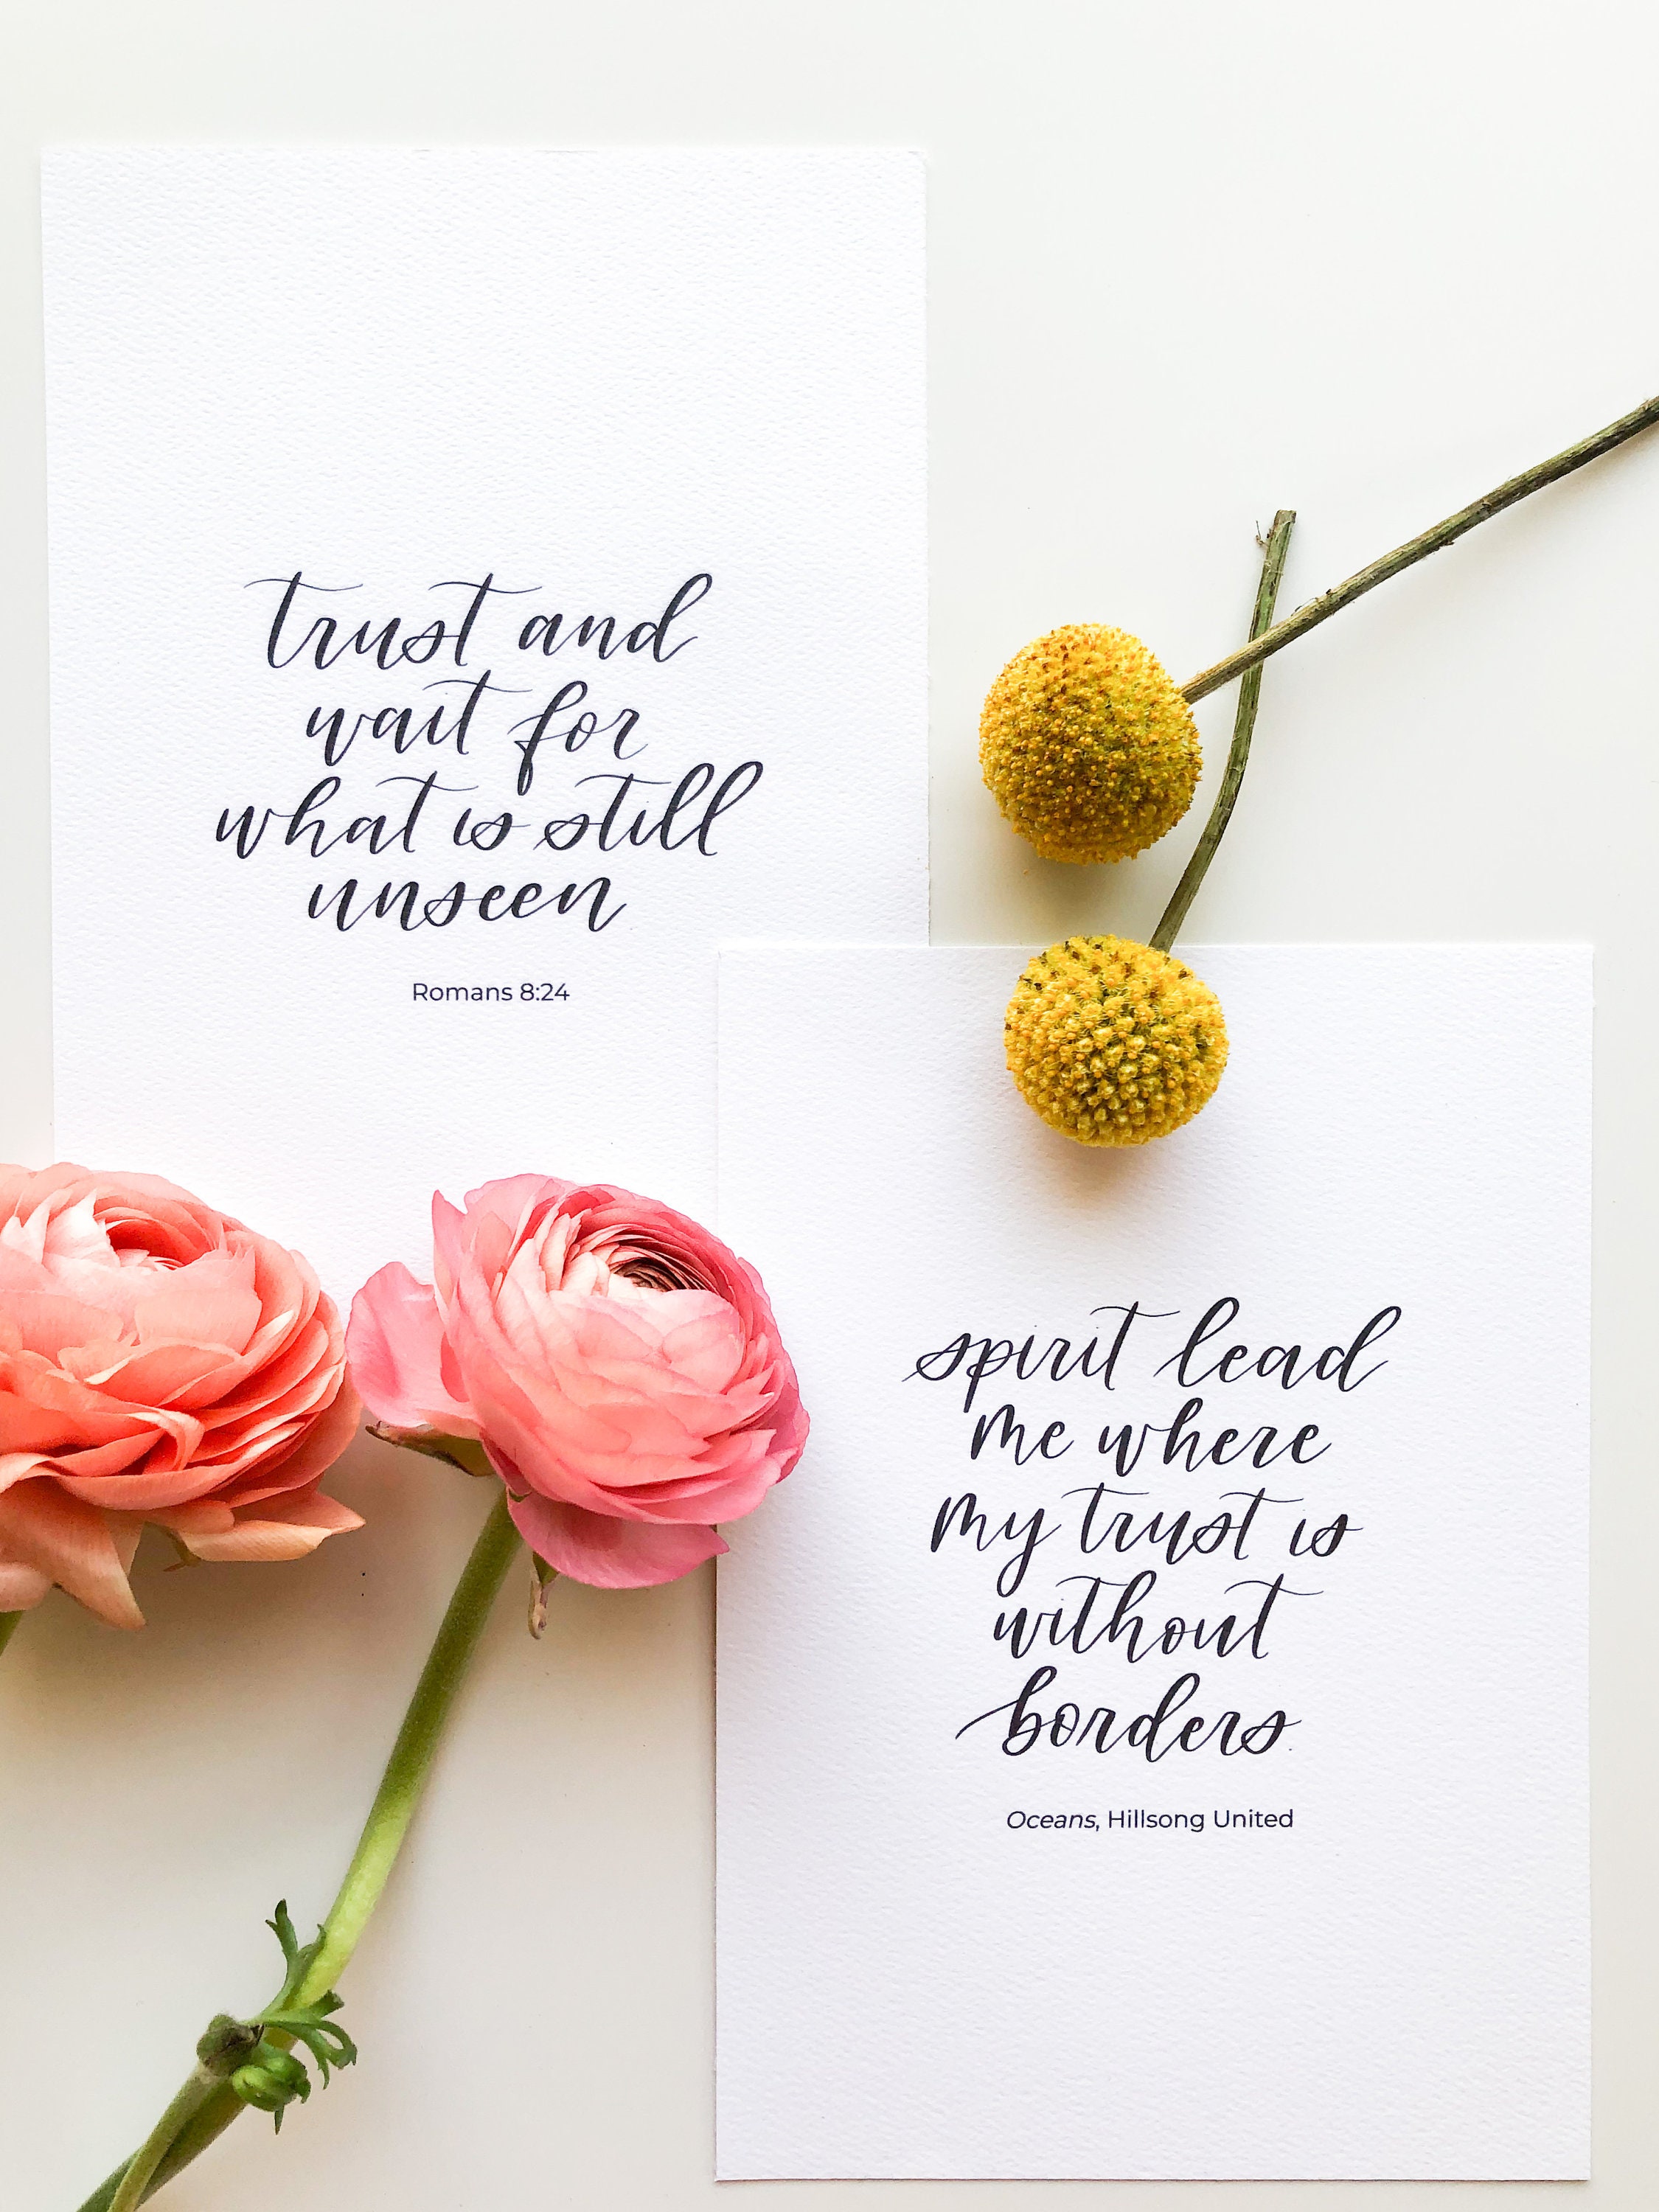 trust and
wait for
what is still
unseen
Romans 8:24
spirit lead
me where
my trust is
without
borders.
Oceans, Hillsong United